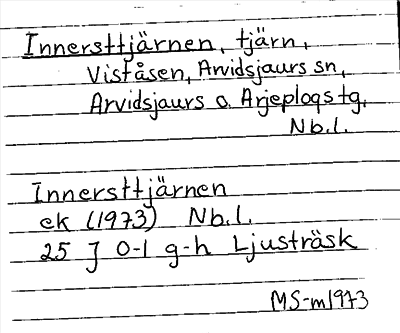 Innersttjärnen, tjärn,
Viståsen, Arvidsjaurs sn,
Arvidsjaurs o. Arjeplogs tg.
Nb.l.
Innersttjärnen
ek (1973) Nb.l.
25 J 0-1 g-h Ljusträsk
MS-m1973